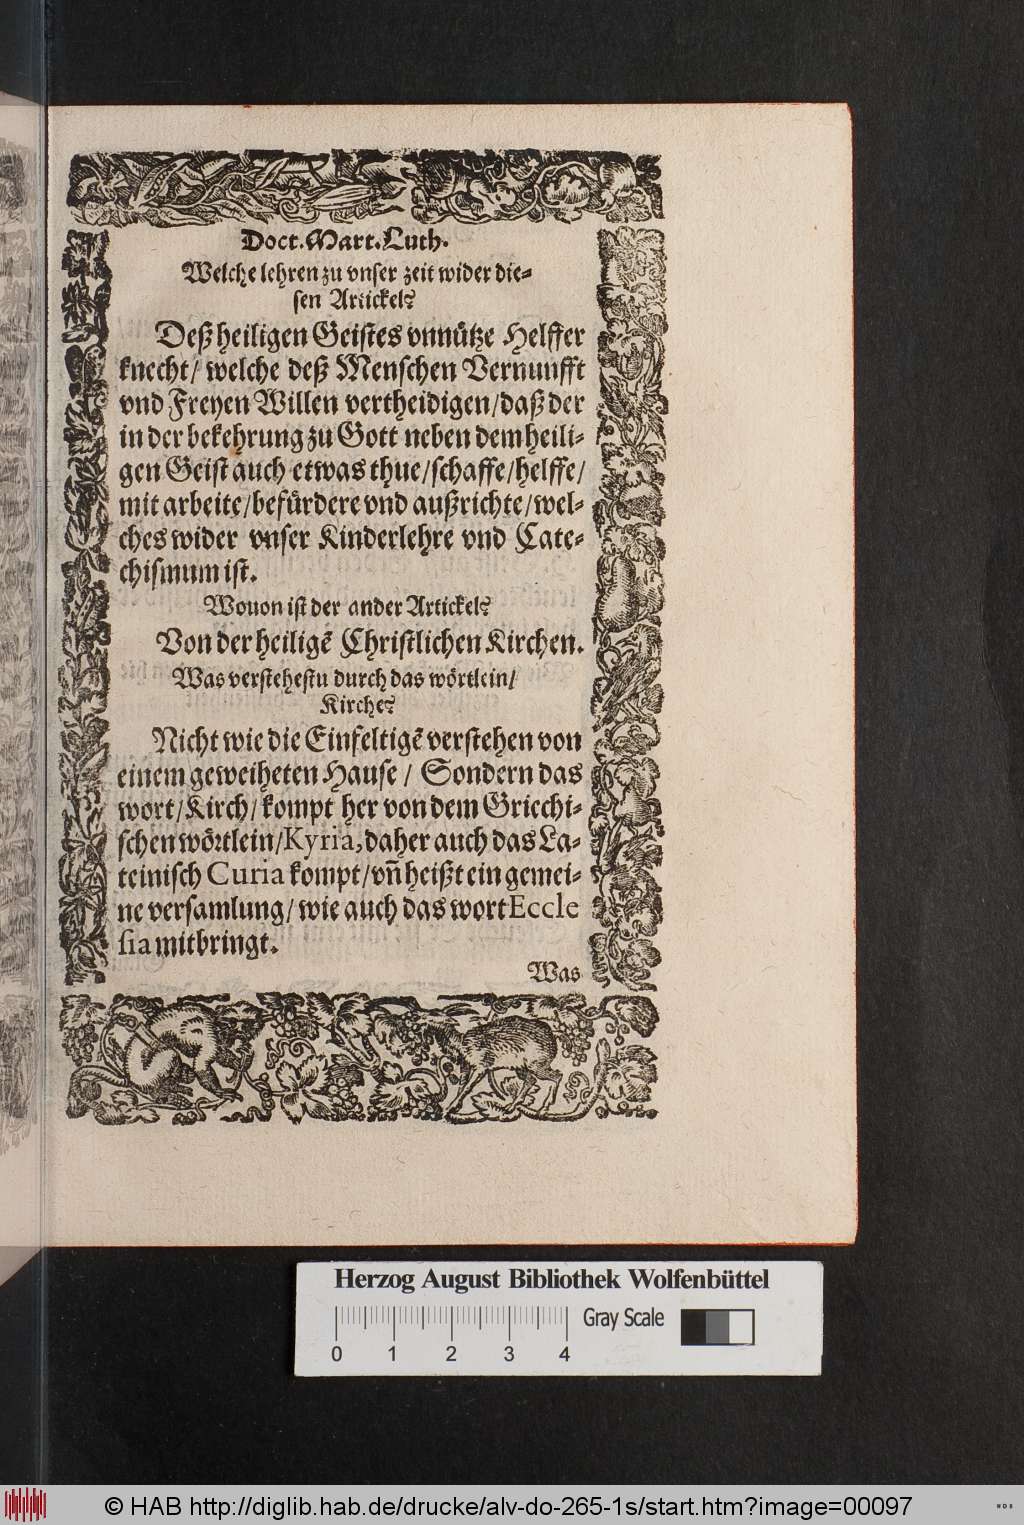 Doct. Mart. Luth.
Welche lehren zu vnser zeit wider die-
sen Artickel?
Deß heiligen Geistes vnnütze Helffer
knecht/ welche deß Menschen Vernunfft
vnd Freyen Willen vertheidigen/ daß der
in der bekehrung zu Gott neben dem heili-
gen Geist auch etwas thue/ schaffe/ helffe/
mit arbeite/ befürdere vnd außrichte/ wel-
ches wider vnser Kinderlehre vnd Cate-
chismum ist.
Wouon ist der ander Artickel?
Von der heiligẽ Christlichen Kirchen.
Was verstehestu durch das wörtlein/
Kirche?
Nicht wie die Einfeltigẽ verstehen von
einem geweiheten Hause/ Sondern das
wort/ Kirch/ kompt her von dem Griechi-
schen wörtlein/ Kyria, daher auch das La-
teinisch Curia kompt/ vñ heißt ein gemei-
ne versamlung/ wie auch das wort Eccle
sia mitbringt.
Was
Herzog August Bibliothek Wolfenbüttel
Gray Scale
0 1 2 3 4
© HAB http://diglib.hab.de/drucke/alv-do-265-1s/start.htm?image=00097